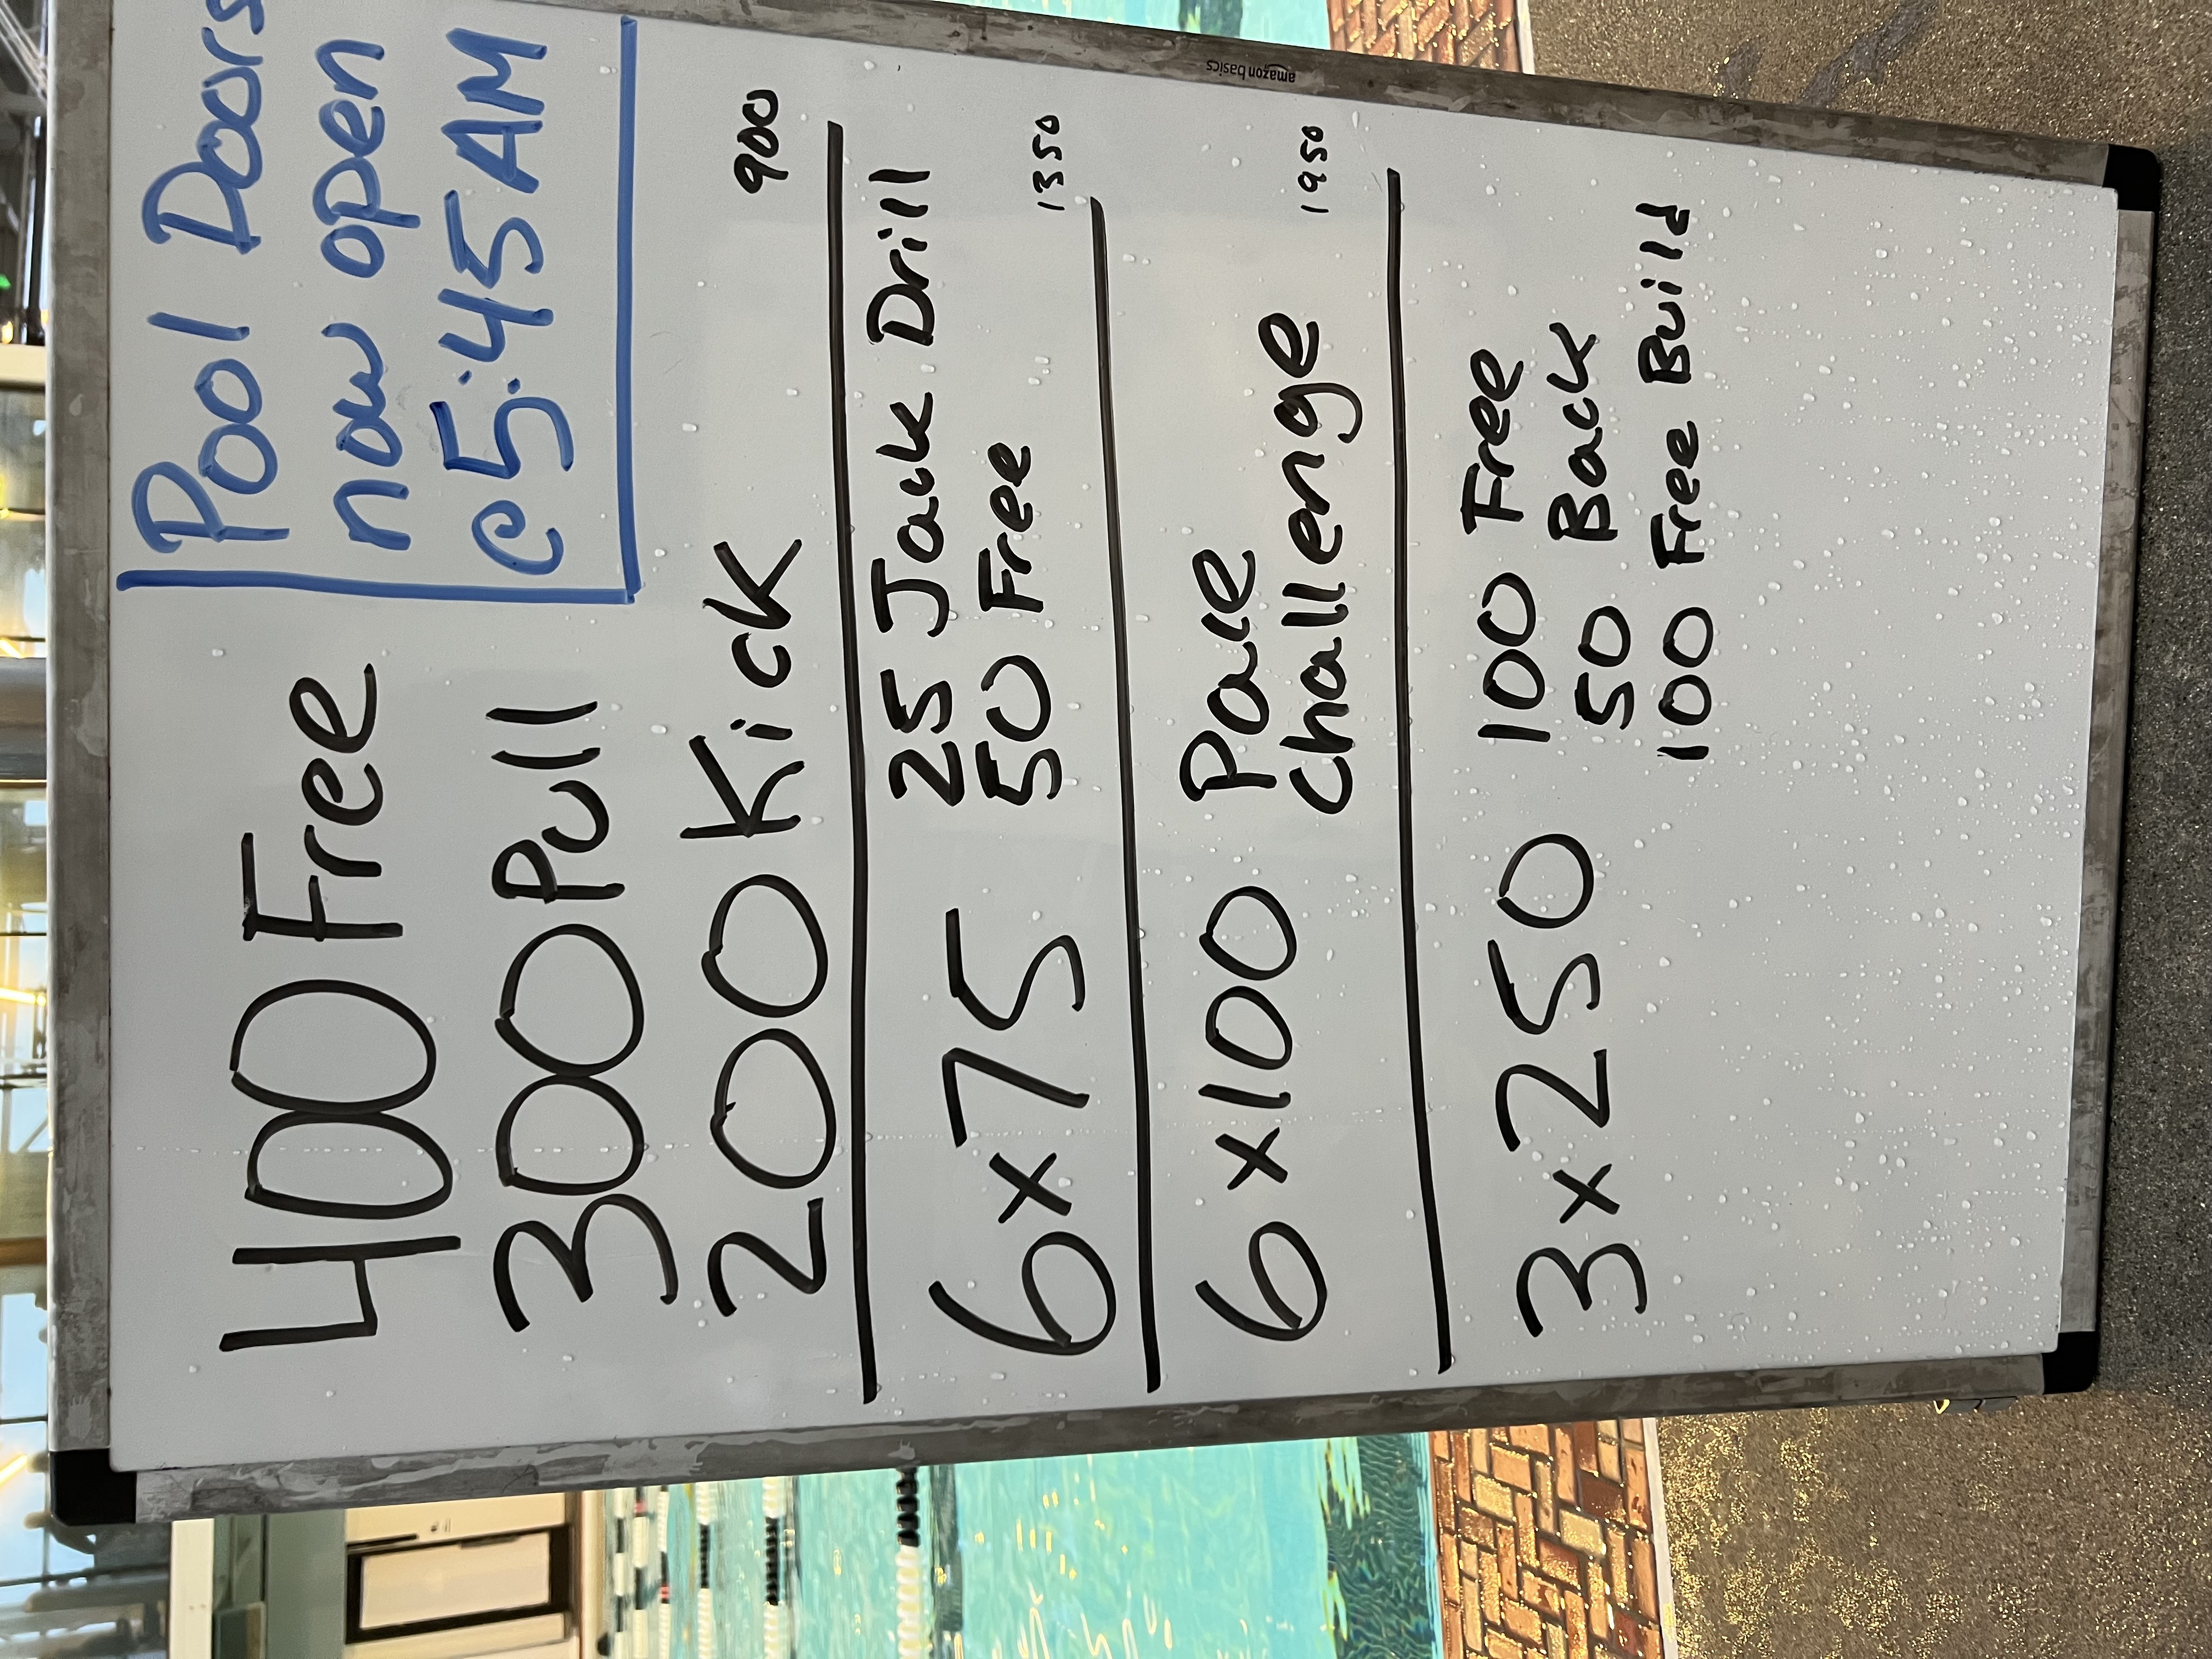 Pool Doors
now open
@5:45AM
400 Free
300 Pull
200 Kick
900
6x75
25 Jack Drill
50 Free
1350
6x100
Pace
Challenge
1950
3x250
100 Free
50 Back
100 Free Build
amazon basics